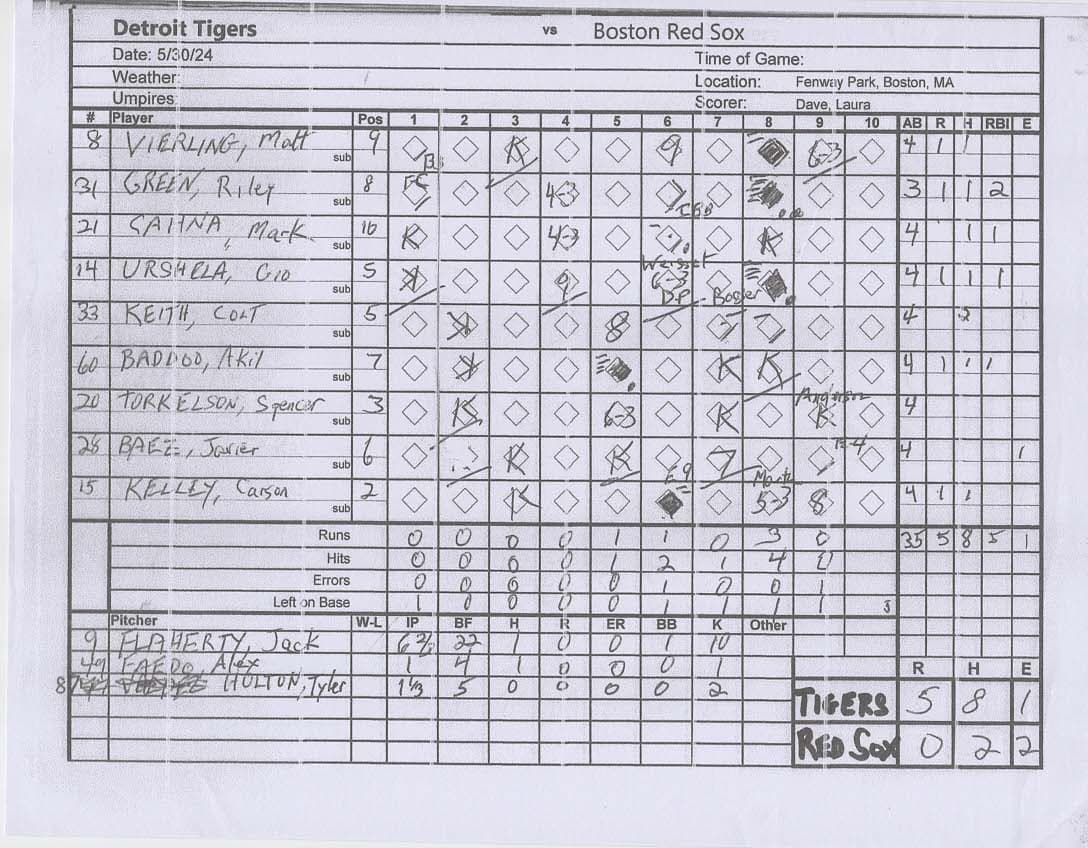 Detroit Tigers vs Boston Red Sox
Date: 5/30/24 Time of Game:
Weather: Location: Fenway Park, Boston, MA
Umpires: Scorer: Dave, Laura
# Player Pos 1 2 3 4 5 6 7 8 9 10 AB R H RBI E
8 VIERLING, Matt 9 K 9 6-3 4 1 1
sub
31 GREEN, Riley 8 FC 4-3 7 3 1 1 2
sub
21 CAHNA, Mark 10 K 4-3 K 4 1 1
sub
14 URSHELA, Gio 5 K 9 Weissert 6-3 DP Booser 4 1 1 1
sub
33 KEITH, COLT 5 K 8 7 7 4 2
sub
60 BADDOO, Akil 7 K K K 4 1 1 1
sub
20 TORKELSON, Spencer 3 K 6-3 K Anderson K 4
sub
28 BAEZ, Javier 6 K K 7 E-4 4 1
sub
15 KELLEY, Carson 2 K E9 5-3 8 4 1 1
sub
Runs 0 0 0 0 1 1 0 3 0 35 5 8 5 1
Hits 0 0 0 0 1 2 1 4 0
Errors 0 0 0 0 0 1 0 0 1
Left on Base 1 0 0 0 0 1 1 1 1
Pitcher W-L IP BF H R ER BB K Other
9 FLAHERTY, Jack 6 2/3 22 1 0 0 1 10
49 FAEDO, Alex 1 4 1 0 0 0 1
HOLTON, Tyler 1 1/3 5 0 0 0 0 2
R H E
TIGERS 5 8 1
RED SOX 0 2 2